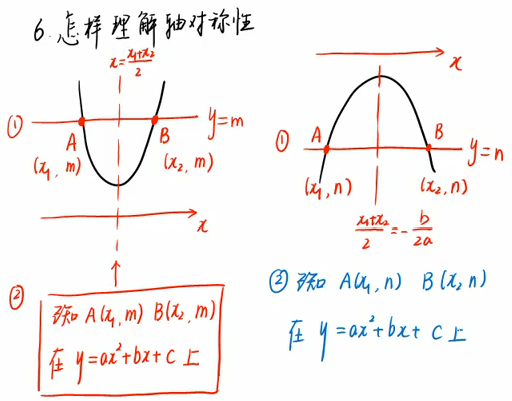 6. 怎样理解轴对称性
x=\frac{x₁+x₂}{2}
① y=m
A B
(x₁, m) (x₂, m)
x
② 已知 A(x₁, m) B(x₂, m)
在 y=ax²+bx+c 上
x
① A B
y=n
(x₁, n) (x₂, n)
\frac{x₁+x₂}{2}=-\frac{b}{2a}
② 已知 A(x₁, n) B(x₂ n)
在 y=ax²+bx+c 上